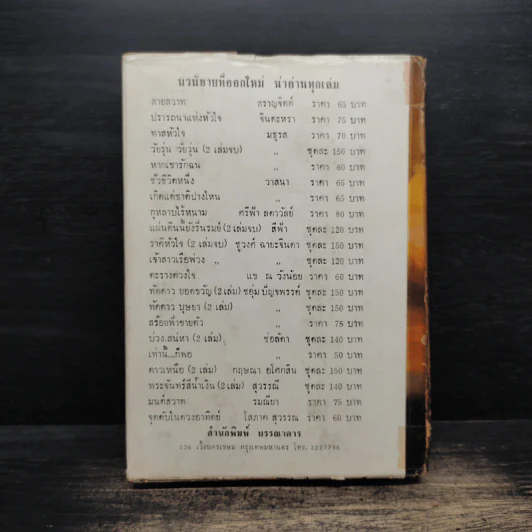 นวนิยายที่ออกใหม่ น่าอ่านทุกเล่ม
สายสวาท สราญจิตต์ ราคา 65 บาท
ปรารถนาแห่งหัวใจ จินตะหรา ราคา 75 บาท
ทาสหัวใจ มธุรส ราคา 70 บาท
วัยรุ่น วัยวุ่น (2 เล่มจบ) ,, ชุดละ 150 บาท
หากเขารักฉัน ,, ราคา 60 บาท
ชั่วชีวิตหนึ่ง วาสนา ราคา 65 บาท
เกิดแต่ชาติปางไหน ,, ราคา 65 บาท
กุหลาบไร้หนาม ศรีฟ้า ลดาวัลย์ ราคา 80 บาท
แผ่นดินนี้ยังรื่นรมย์ (2 เล่มจบ) สีฟ้า ชุดละ 120 บาท
ราคีหัวใจ (2 เล่มจบ) ชูวงศ์ ฉายะจินดา ชุดละ 150 บาท
เจ้าสาวเรือพ่วง ,, ,, ชุดละ 120 บาท
ตะรางดวงใจ แข ณ วังน้อย ราคา 60 บาท
ทัดดาว ยอดขวัญ (2 เล่ม) ชอุ่ม ปัญจพรรค์ ชุดละ 150 บาท
ทัดดาว บุษยา (2 เล่ม) ,, ชุดละ 150 บาท
สร้อยฟ้าขายตัว ,, ราคา 75 บาท
บ่วงเสน่หา (2 เล่ม) ช่อลัดา ชุดละ 140 บาท
เท่านี้...ก็พอ ,, ราคา 50 บาท
ดาวเหนือ (2 เล่ม) กฤษณา อโศกสิน ชุดละ 150 บาท
พระจันทร์สีน้ำเงิน (2 เล่ม) สุวรรณี ชุดละ 140 บาท
มนต์สวาท รมณียา ราคา 75 บาท
จุดดับในดวงอาทิตย์ โสภาค สุวรรณ ราคา 60 บาท
สำนักพิมพ์ บรรณาคาร
236 เวิ้งนครเขษม กรุงเทพมหานคร โทร. 2227796